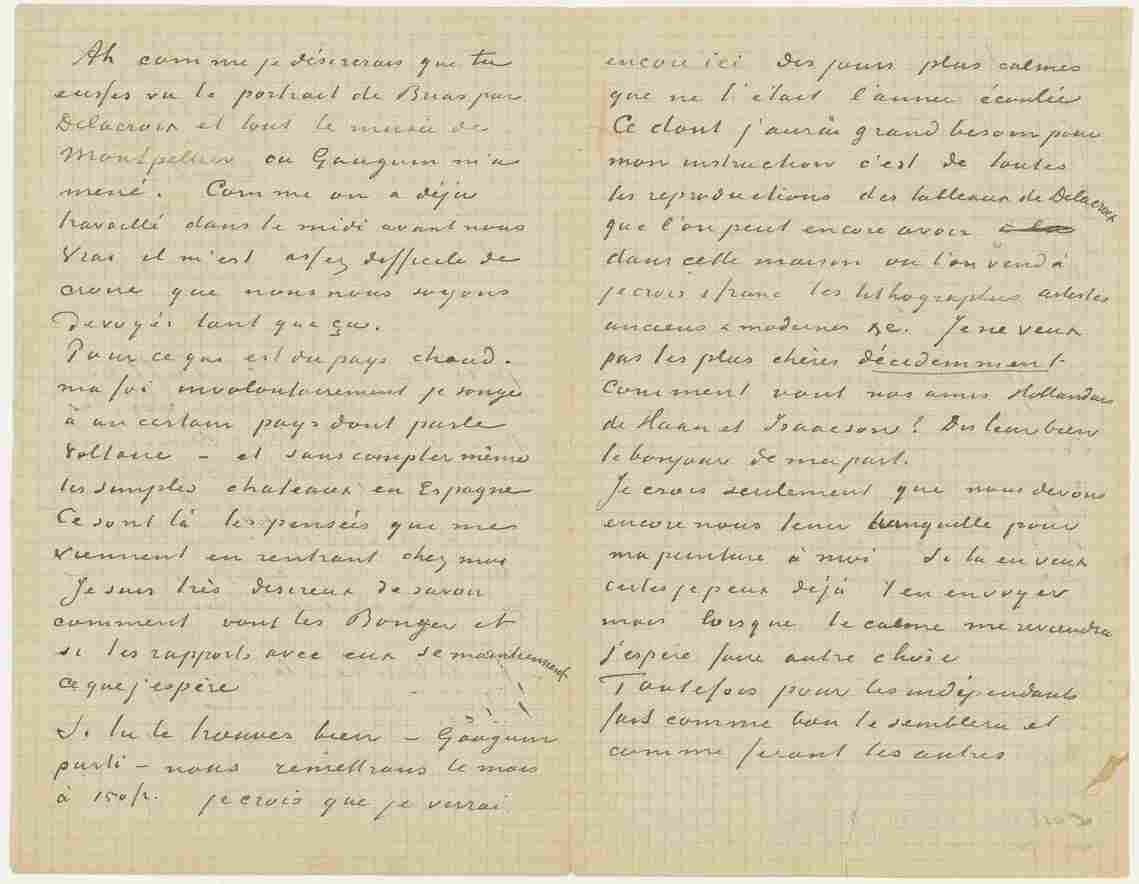 Ah comme je désirerais que tu
eusses vu le portrait de Brias par
Delacroix et tout le musée de
Montpellier où Gauguin m'a
mené. Comme on a déjà
travaillé dans le midi avant nous
Vrai il m'est assez difficile de
croire que nous nous soyons
devoyés tant que ça.
Pour ce que est du pays chaud.
ma foi involontairement je songe
à un certain pays dont parle
Voltaire – et sans compter même
les simples chateaux en Espagne
Ce sont là les pensées que me
viennent en rentrant chez moi
Je suis très desireux de savoir
comment vont les Bonger et
si les rapports avec eux se maintiennent
ce que j'espère
Si tu te trouves bien – Gauguin
parti – nous remettrons le mois
à 150 fr. je crois que je verrai
encore ici des jours plus calmes
que ne l'était l'année écoulée
Ce dont j'aurai grand besoin pour
mon instruction c'est de toutes
les reproductions des tableaux de Delacroix
que l'on peut encore avoir
dans cette maison où l'on vend à
je crois 1 franc les lithographies artistes
anciens & modernes &c. Je ne veux
pas les plus chères décedemment
Comment vont nos amis Hollandais
de Haan et Isaäcson? Dis leur bien
le bonjour de ma part.
Je crois seulement que nous devons
encore nous tenir tranquille pour
ma peinture à moi Si tu en veux
certes je peux déjà t'en envoyer
mais lorsque le calme me reviendra
j'espère faire autre chose
Toutefois pour les indépendants
fais comme bon te semblera et
comme feront les autres